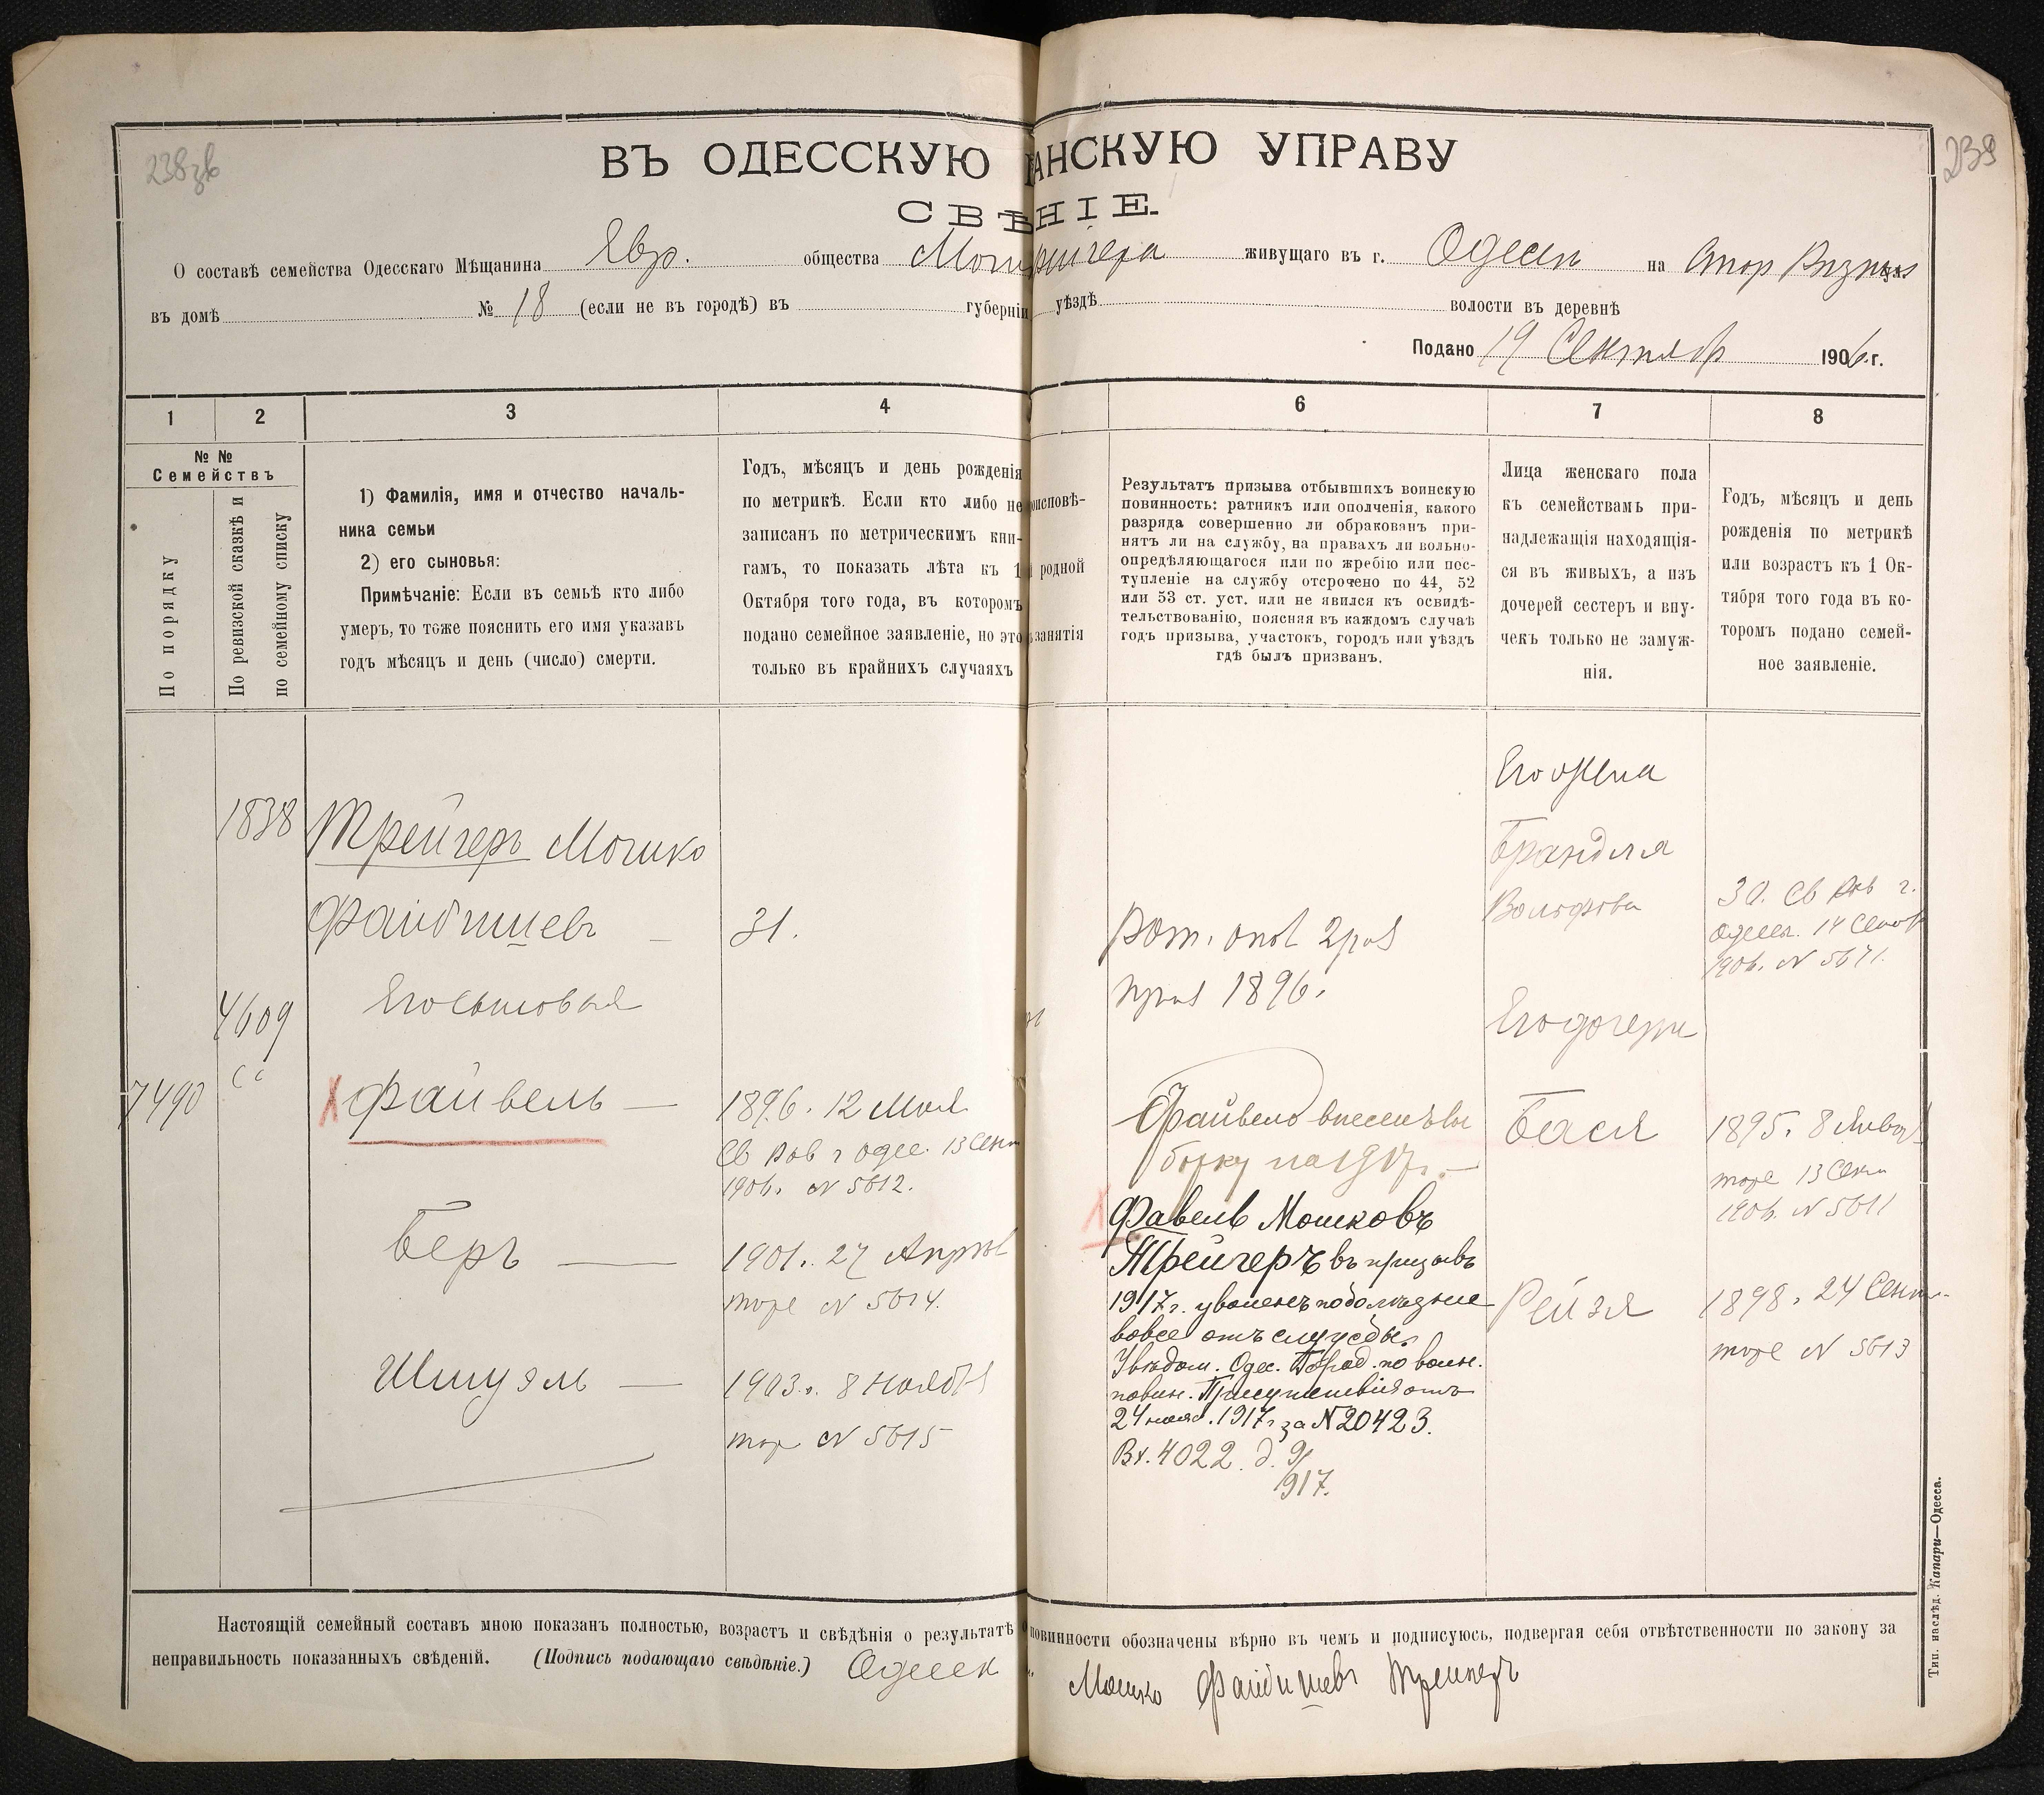 238зв
239
ВЪ ОДЕССКУЮ АНСКУЮ УПРАВУ
СВѢНІЕ.
О составѣ семейства Одесскаго Мѣщанина Евр. общества живущаго въ г. Одессѣ на
въ домѣ № 18 (если не въ городѣ) въ губерніи уѣздѣ волости въ деревнѣ
Подано 19 Сентября 1906 г.
1 2 3 4 6 7 8
№ №
Семействъ
По порядку
По ревизской сказкѣ и
по семейному списку
1) Фамилія, имя и отчество началь-
ника семьи
2) его сыновья:
Примѣчаніе: Если въ семьѣ кто либо
умеръ, то тоже пояснить его имя указавъ
годъ мѣсяцъ и день (число) смерти.
Годъ, мѣсяцъ и день рожденія
по метрикѣ. Если кто либо не
записанъ по метрическимъ кни-
гамъ, то показать лѣта къ 1
Октября того года, въ которомъ
подано семейное заявленіе, но это
только въ крайнихъ случаяхъ
оисповѣ-
родной
занятія
Результатъ призыва отбывшихъ воинскую
повинность: ратникъ или ополченія, какого
разряда совершенно ли обракованъ при-
нятъ ли на службу, на правахъ ли вольно-
опредѣляющагося или по жребію или пос-
тупленіе на службу отсрочено по 44, 52
или 53 ст. уст. или не явился къ освидѣ-
тельствованію, поясняя въ каждомъ случаѣ
годъ призыва, участокъ, городъ или уѣздъ
гдѣ былъ призванъ.
Лица женскаго пола
къ семействамъ при-
надлежащія находящія-
ся въ живыхъ, а изъ
дочерей сестеръ и вну-
чекъ только не замуж-
нія.
Годъ, мѣсяцъ и день
рожденія по метрикѣ
или возрастъ къ 1 Ок-
тября того года въ ко-
торомъ подано семей-
ное заявленіе.
1838
Трейгеръ Мошко
Файбишевъ — 31.
4609
Его сыновья
7490
Файвель — 1896. 12 Мая
Св Рав г Одес. 13 Сент
1906. N 5612.
Беръ — 1901. 27 Апрѣл
тоже N 5614.
Шмуэль — 1903 г. 8 Ноября
тоже N 5615
Рат. опол 2 раз
приз 1896.
Файвель внесенъ въ вы
борку на 1917 г. —
Фавель Мошковъ
Трейгеръ въ призывъ
1917 г. уволенъ по болѣзни
вовсе отъ службы.
Увѣдом. Одес. Город. по воин.
повин. Присутствія отъ
24 нояб. 1917 г за N 20423.
Вх. 4022 д. 9/
917.
Его жена
Брандля
Вольфова
30. Св Рав г.
Одессы. 14 Сентяб
1906. N 5671.
Его дочери
Бася
1895. 8 Январ
тоже 13 Сент
1906. N 5611
Рейзя
1898. 24 Сент
тоже N 5613
Настоящій семейный составъ мною показанъ полностью, возрастъ и свѣдѣнія о результатѣ повинности обозначены вѣрно въ чемъ и подписуюсь, подвергая себя отвѣтственности по закону за
неправильность показанныхъ свѣдѣній. (Подпись подающаго свѣдѣніе.) Мошко Файбишевъ Трейгеръ
Тип. наслѣд. Капари—Одесса.